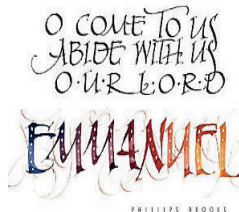 O COME TO US
ABIDE WITH US
O·U·R L·O·R·D
EMMANUEL
PHILLIPS BROOKS